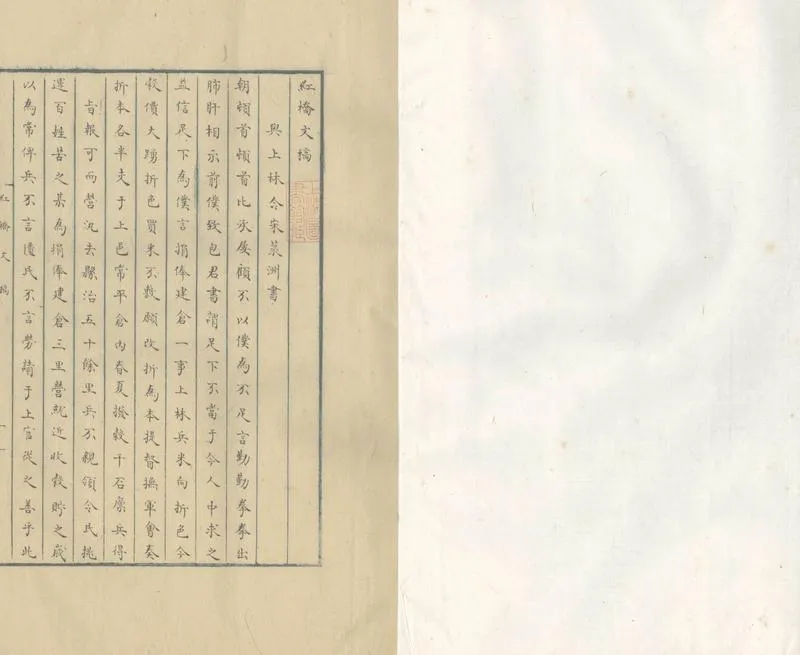 紅橋文稿
與上林令宋蒙洲書
朝頓首頓首比承俊顧不以僕為不足言勤勤拳拳出
肺肝相示前僕致包君書謂足下不當于今人中求之
益信足下為僕言捐俸建倉一事上林兵米向折色今
穀價大踴折色買米不敷願改折為本提督撫軍會奏
折本各半支于上邑常平倉內春夏撥穀千石廩兵得
旨報可而營汛去縣治五十餘里兵不親領令民挑
運百姓苦之某為捐俸建倉三里營就近收穀貯之歲
以為常俾兵不言遠民不言勞請于上官從之善乎此
紅橋文稿
一